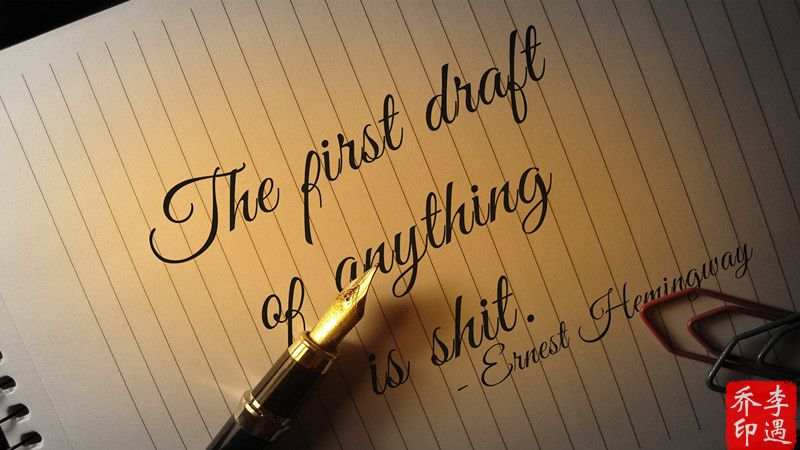 The first draft
of anything
is shit.
- Ernest Hemingway
李遇
乔印